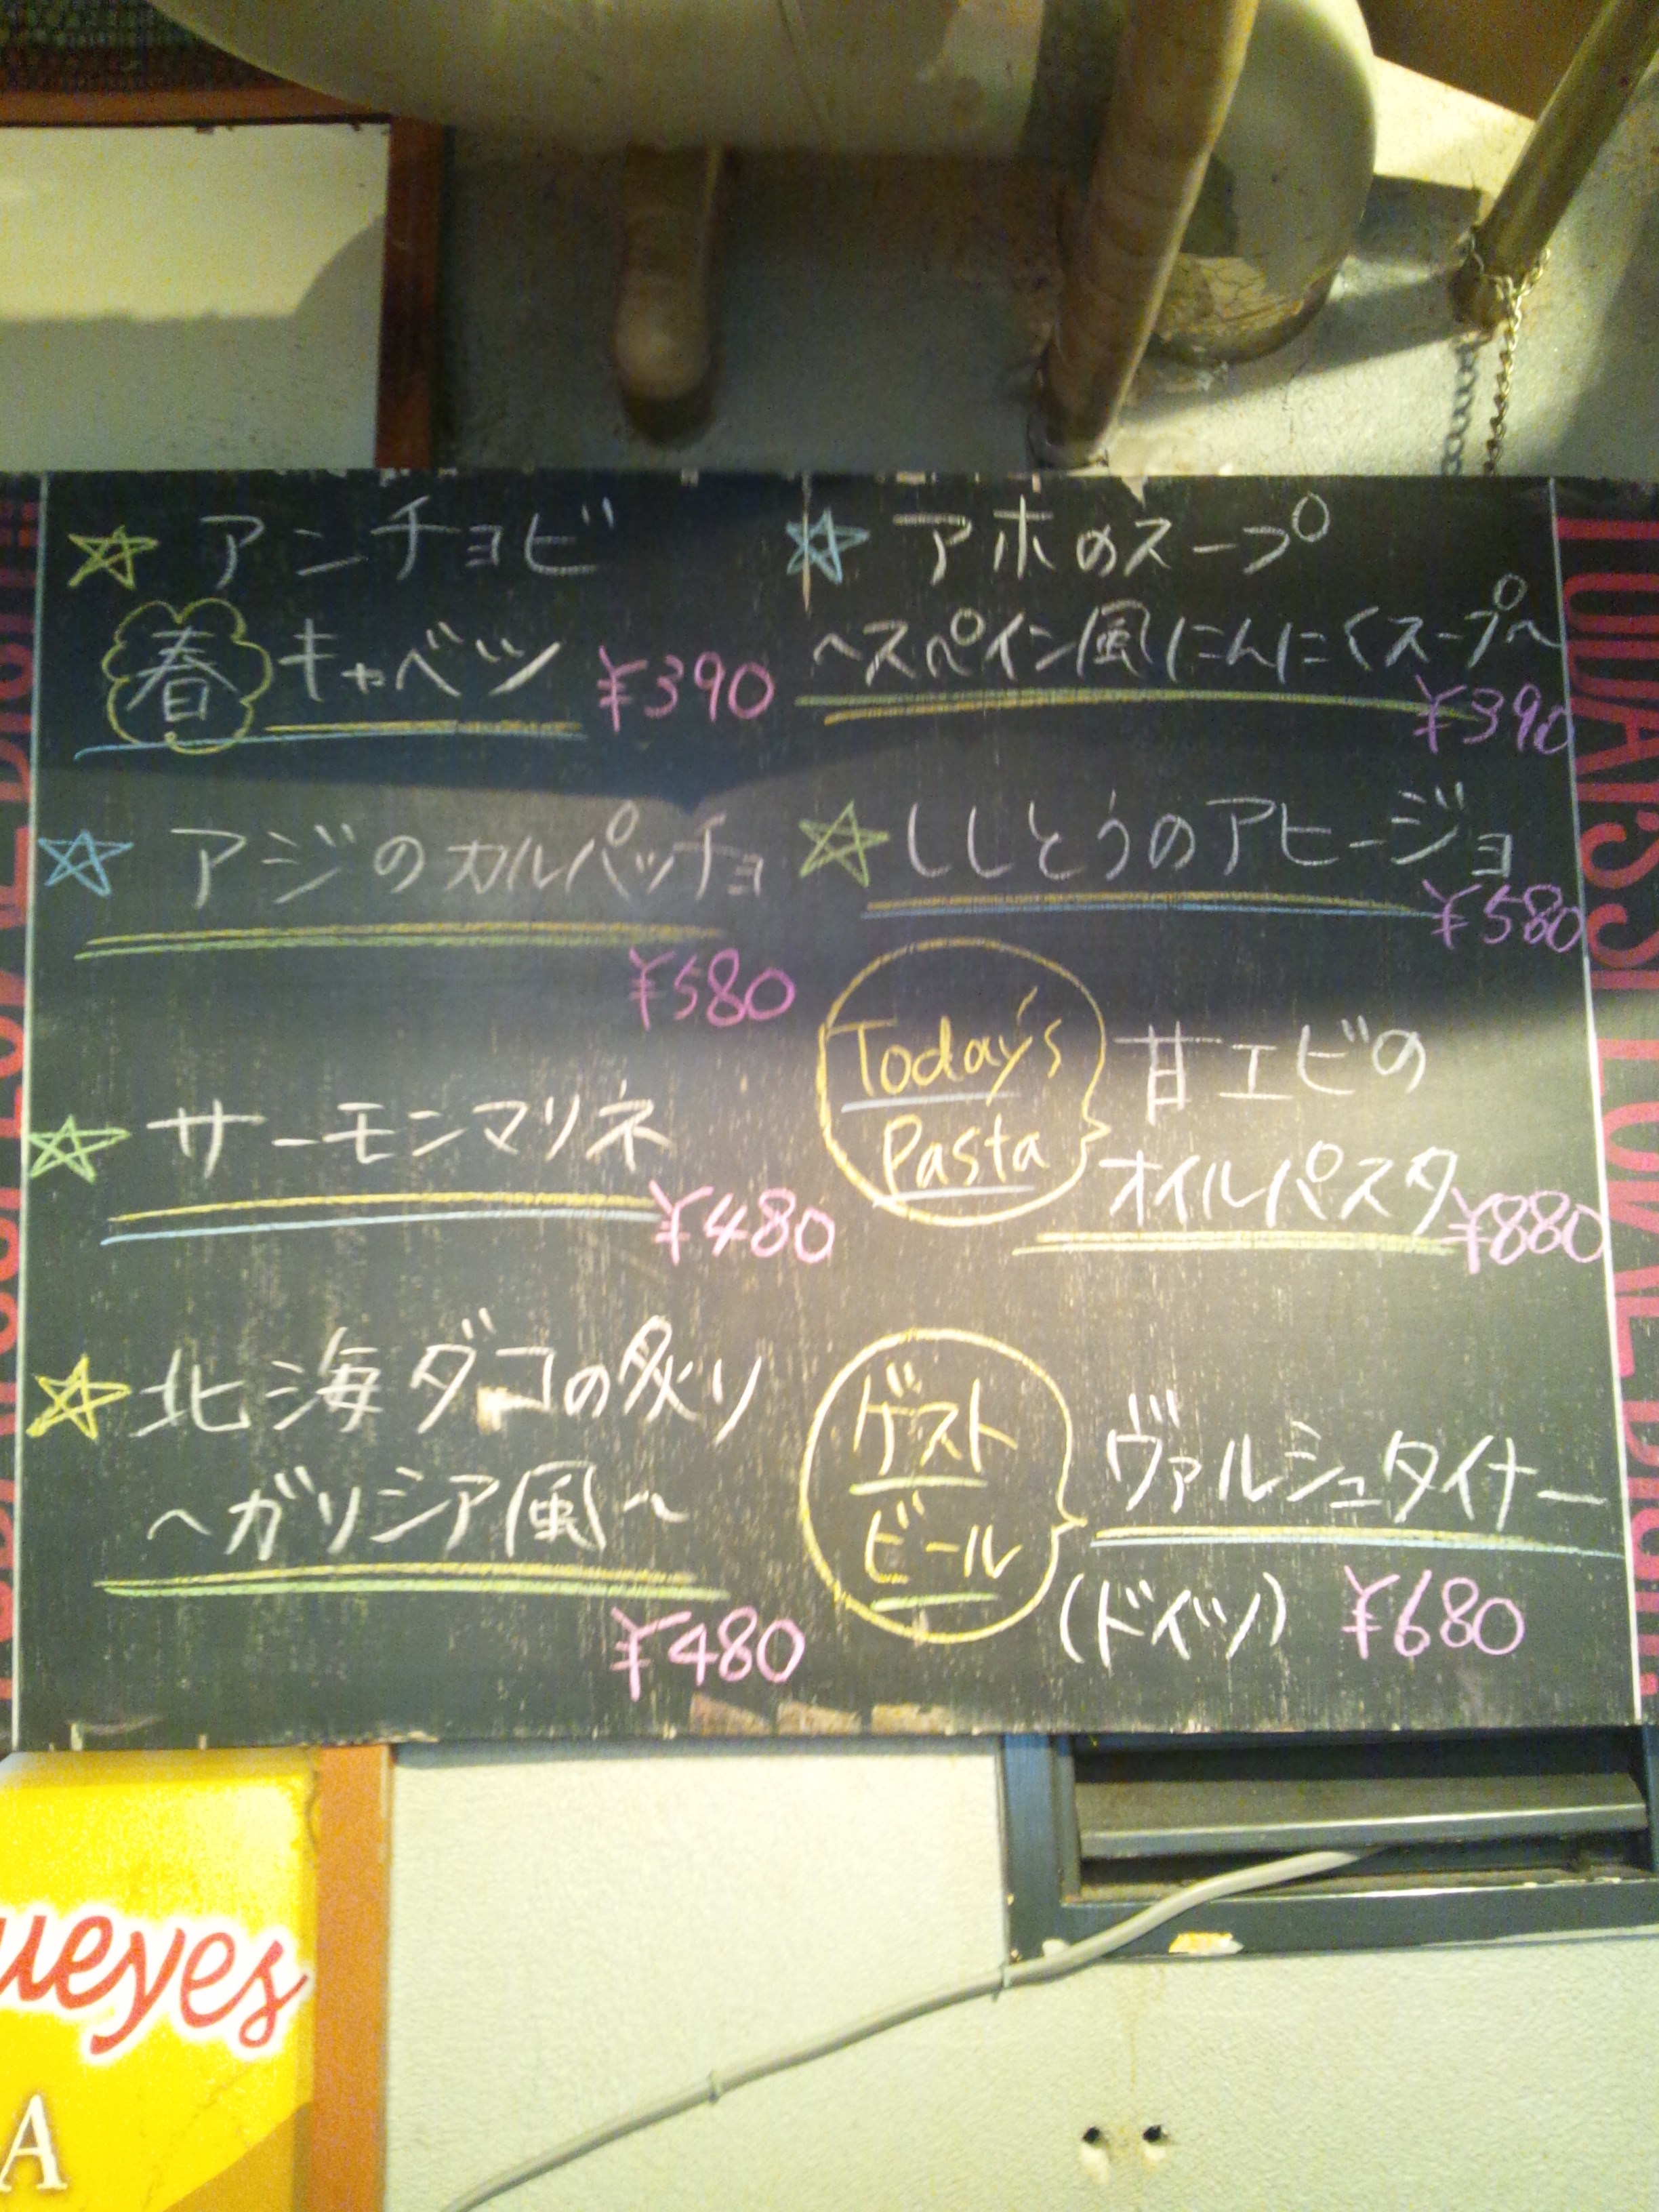 アンチョビ
春キャベツ ¥390
アジのカルパッチョ
¥580
サーモンマリネ
¥480
北海ダコの炙り
~ガリシア風~
¥480
アホのスープ
~スペイン風にんにくスープ~
¥390
ししとうのアヒージョ
¥580
Today's
Pasta
甘エビの
オイルパスタ ¥880
ゲスト
ビール
ヴァルシュタイナー
(ドイツ) ¥680
ueyes
A